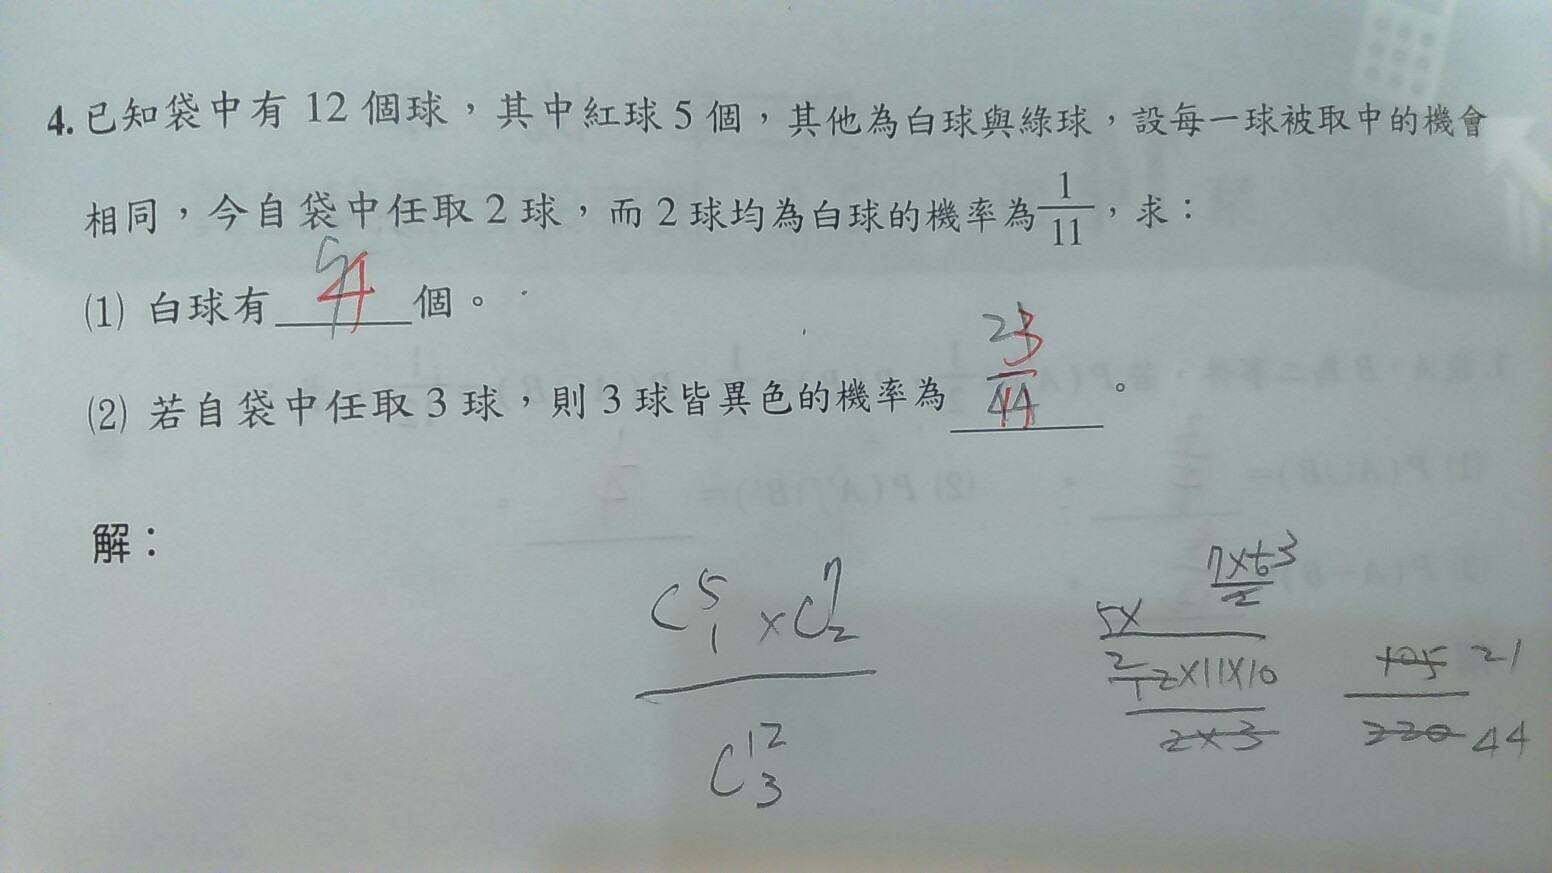 4. 已知袋中有 12 個球，其中紅球 5 個，其他為白球與綠球，設每一球被取中的機會
相同，今自袋中任取 2 球，而 2 球均為白球的機率為 1/11，求：
(1) 白球有 4 個。
(2) 若自袋中任取 3 球，則 3 球皆異色的機率為 3/11。
解：
C⁵₁ × C⁷₂
C¹²₃
7×6 3
2
5×
2
12×11×10
2×3
105 21
220 44